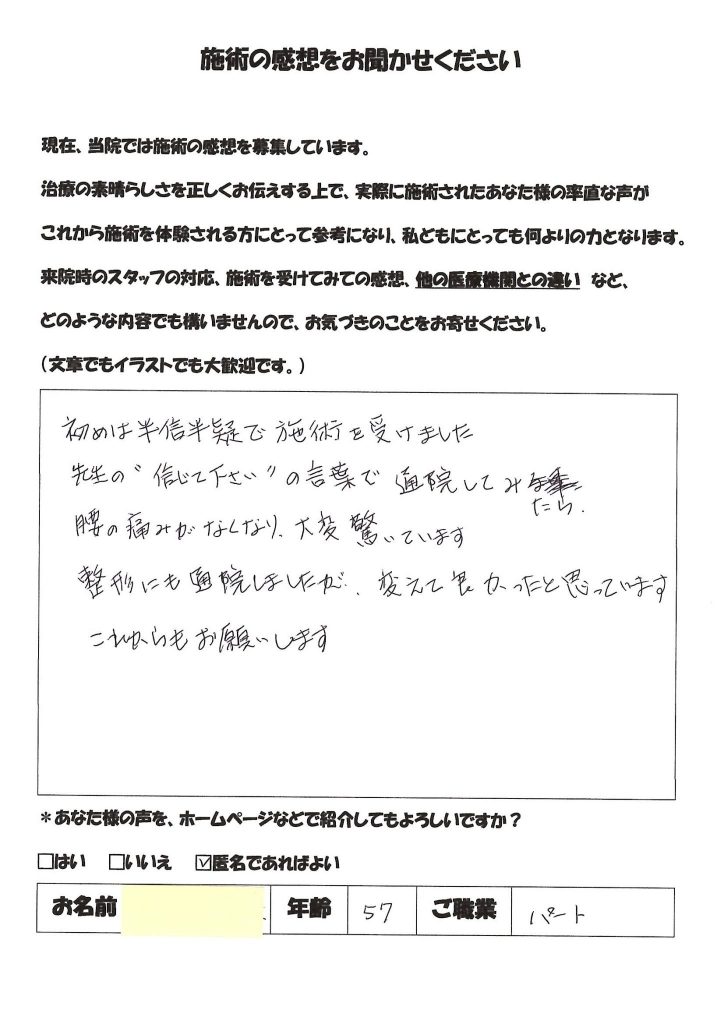 施術の感想をお聞かせください
現在、当院では施術の感想を募集しています。
治療の素晴らしさを正しくお伝えする上で、実際に施術されたあなた様の率直な声が
これから施術を体験される方にとって参考になり、私どもにとっても何よりの力となります。
来院時のスタッフの対応、施術を受けてみての感想、他の医療機関との違い など、
どのような内容でも構いませんので、お気づきのことをお寄せください。
(文章でもイラストでも大歓迎です。)
初めは半信半疑で施術を受けました
先生の"信じて下さい"の言葉で通院してみ
たら、
腰の痛みがなくなり、大変驚いています
整形にも通院しましたが、変えて良かったと思っています
これからもお願いします
*あなた様の声を、ホームページなどで紹介してもよろしいですか?
□はい □いいえ ☑匿名であればよい
お名前 年齢 57 ご職業 パート